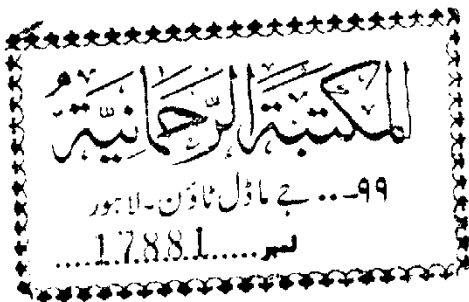 المکتبۃ الرحمانیۃ
۹۹... جے ماڈل ٹاؤن۔ لاہور
نمبر.....17881....